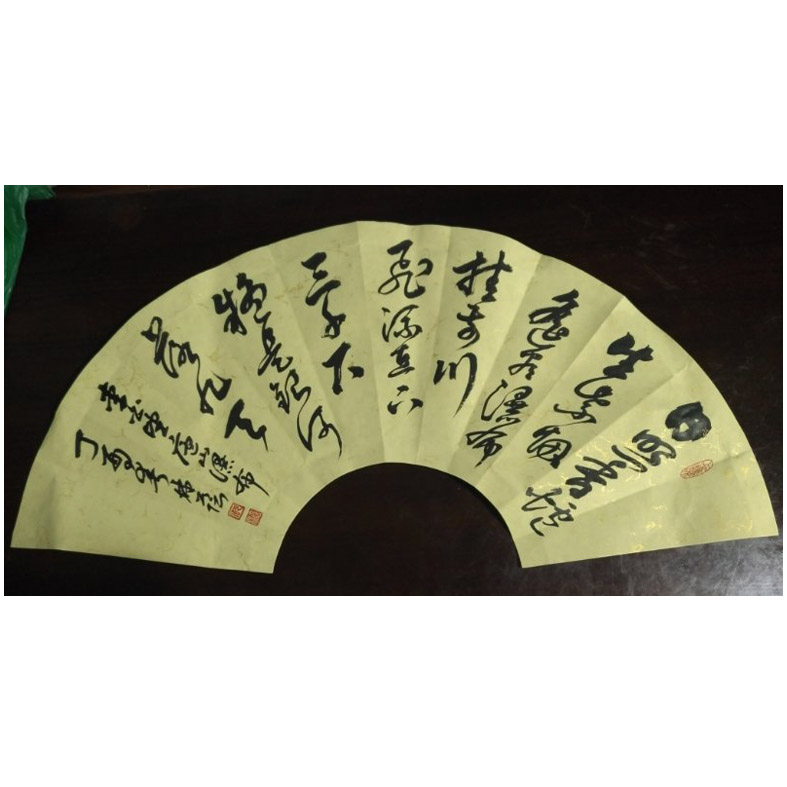 日照香炉
生紫烟
遥看瀑布
挂前川
飞流直下
三千尺
疑是银河
落九天
李白望庐山瀑布
丁酉